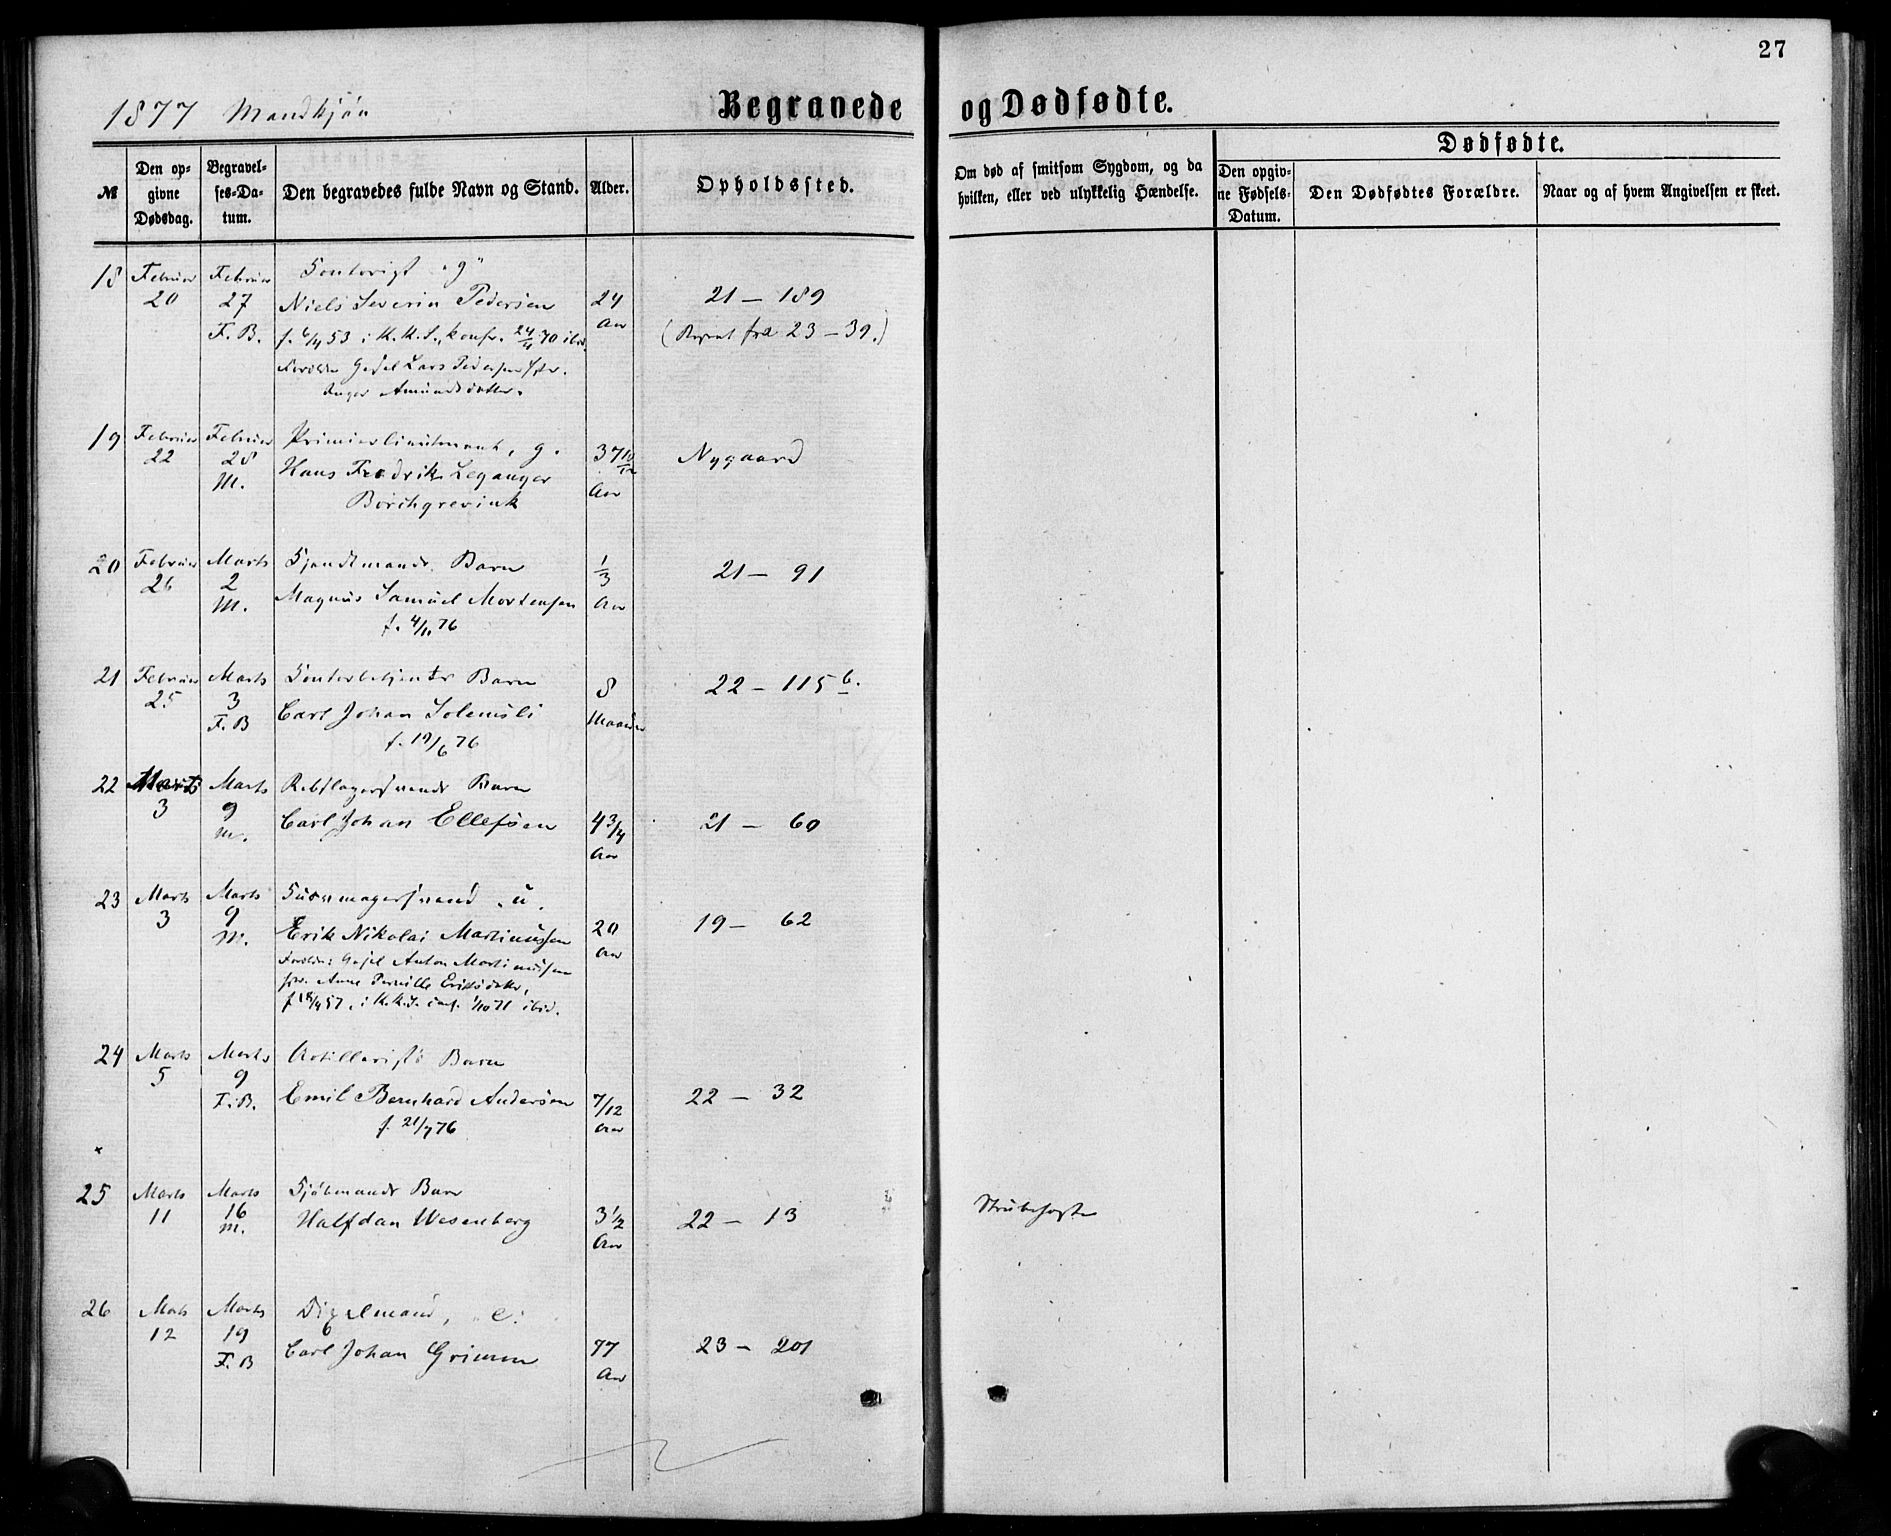 27
1877 Mandkjøn
Begravede og Dødfødte.
№
Den opgivne Dødsdag.
Begravelses-Datum.
Den begravedes fulde Navn og Stand.
Alder.
Opholdssted.
Om død af smitsom Sygdom, og da hvilken, eller ved ulykkelig Hændelse.
Dødfødte.
Den opgivne Fødsels-Datum.
Den Dødfødtes Forældre.
Naar og af hvem Angivelsen er skeet.
18 Februar 20 Februar 27 F. B.
Contorist "g"
Niels Severin Pedersen 24 Aar 21 – 189
f. 6/4 53 i K. K. S., konfir. 24/4 70 ibid. (Reyst fra 23 – 39.)
Forældre Gesel Lars Pedersen
Inger Amundsdatter.
19 Februar 22 Februar 28 M.
Premierlieutenant, g.
Hans Fredrik Leganger
Borchgrevink
37 10/12 Aar Nygaard
20 Februar 26 Marts 2 M.
Barn
Magnus Samuel Mortensen
f. 4/11 76
1/3 Aar 21 – 91
21 Februar 25 Marts 3 F. B
Barn
Carl Johan Solemsli
f. 19/6 76
8 Maaneder 22 – 115 b.
22 Marts 3 Marts 9 M.
Rebslagersvends Barn
Carl Johan Ellefsen 4 3/4 Aar 21 – 60
23 Marts 3 Marts 9 M.
u.
Erik Nikolai Martinussen 20 Aar 19 – 62
Forældre: Gesel Anton Martinussen
Anne Pernille Eriksdatter,
f. 18/4 57, i K. K. S. conf. 1/10 71 ibid.
24 Marts 5 Marts 9 F. B.
Artillerists Barn
Emil Bernhard Andersen
f. 21/7 76
7/12 Aar 22 – 32
25 Marts 11 Marts 16 M.
Sjømands Barn
Halfdan Wesenberg 3 1/2 Aar 22 – 13 Strubehoste
26 Marts 12 Marts 19 F. B
e.
Carl Johan Grimm 77 Aar 23 – 201